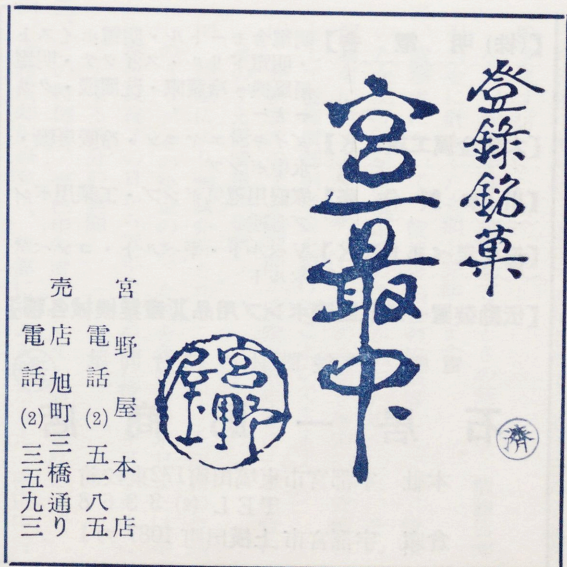 登錄銘菓
宮一最中
宮野屋
宮野屋本店
電話(2)五一八五
売店 旭町三橋通り
電話(2)三五九三